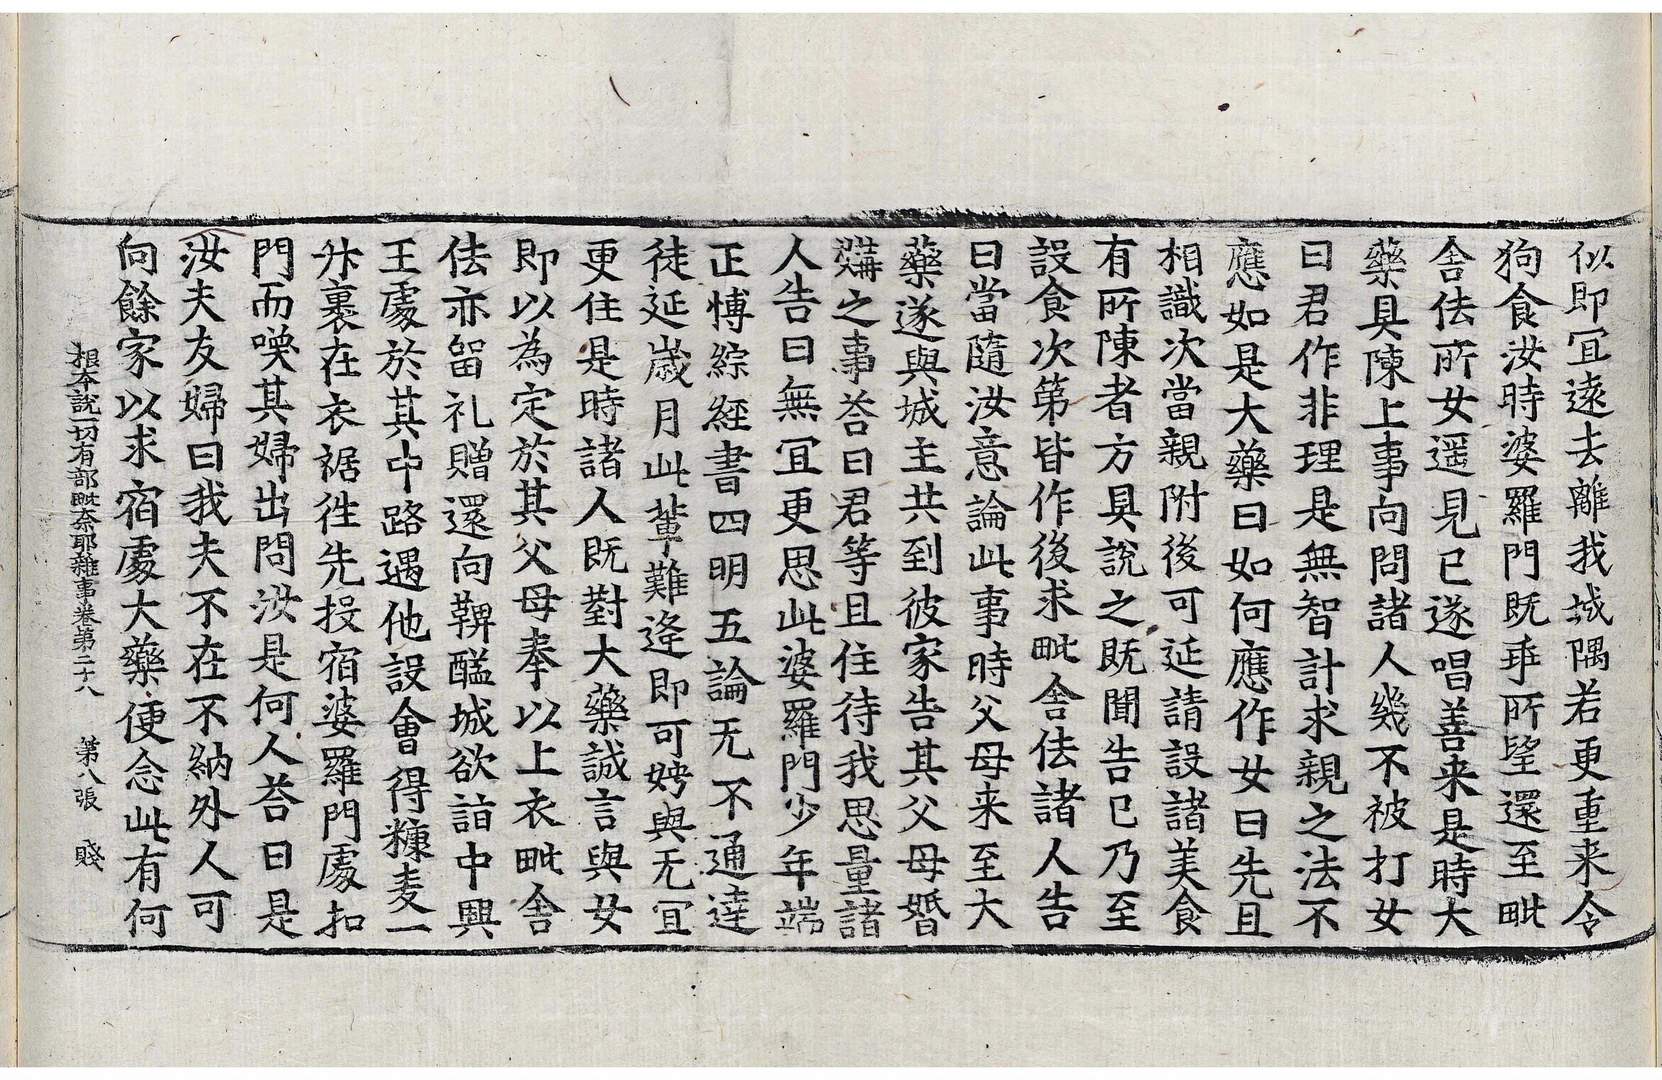 似即宜遠去離我城隅若更重来令
狗食汝時婆羅門既乖所望還至毗
舍佉所女遥見已遂唱善来是時大
藥具陳上事向問諸人幾不被打女
曰君作非理是無智計求親之法不
應如是大藥曰如何應作女曰先且
相識次當親附後可延請設諸美食
有所陳者方具說之既聞告已乃至
設食次第皆作後求毗舍佉諸人告
曰當隨汝意論此事時父母来至大
藥遂與城主共到彼家告其父母婚
媾之事荅曰君等且住待我思量諸
人告曰無宜更思此婆羅門少年端
正愽綜經書四明五論无不通達
徒延歲月此輩難逢即可娉與无宜
更住是時諸人既對大藥誠言與女
即以為定於其父母奉以上衣毗舍
佉亦留礼贈還向鞞醯城欲詣中興
王處於其中路遇他設會得䊵麦一
升裹在衣裾徃先投宿婆羅門處扣
門而喚其婦出問汝是何人荅曰是
汝夫友婦曰我夫不在不納外人可
向餘家以求宿處大藥便念此有何
根本說一切有部毗奈耶雜事卷第二十八 第八張 賤